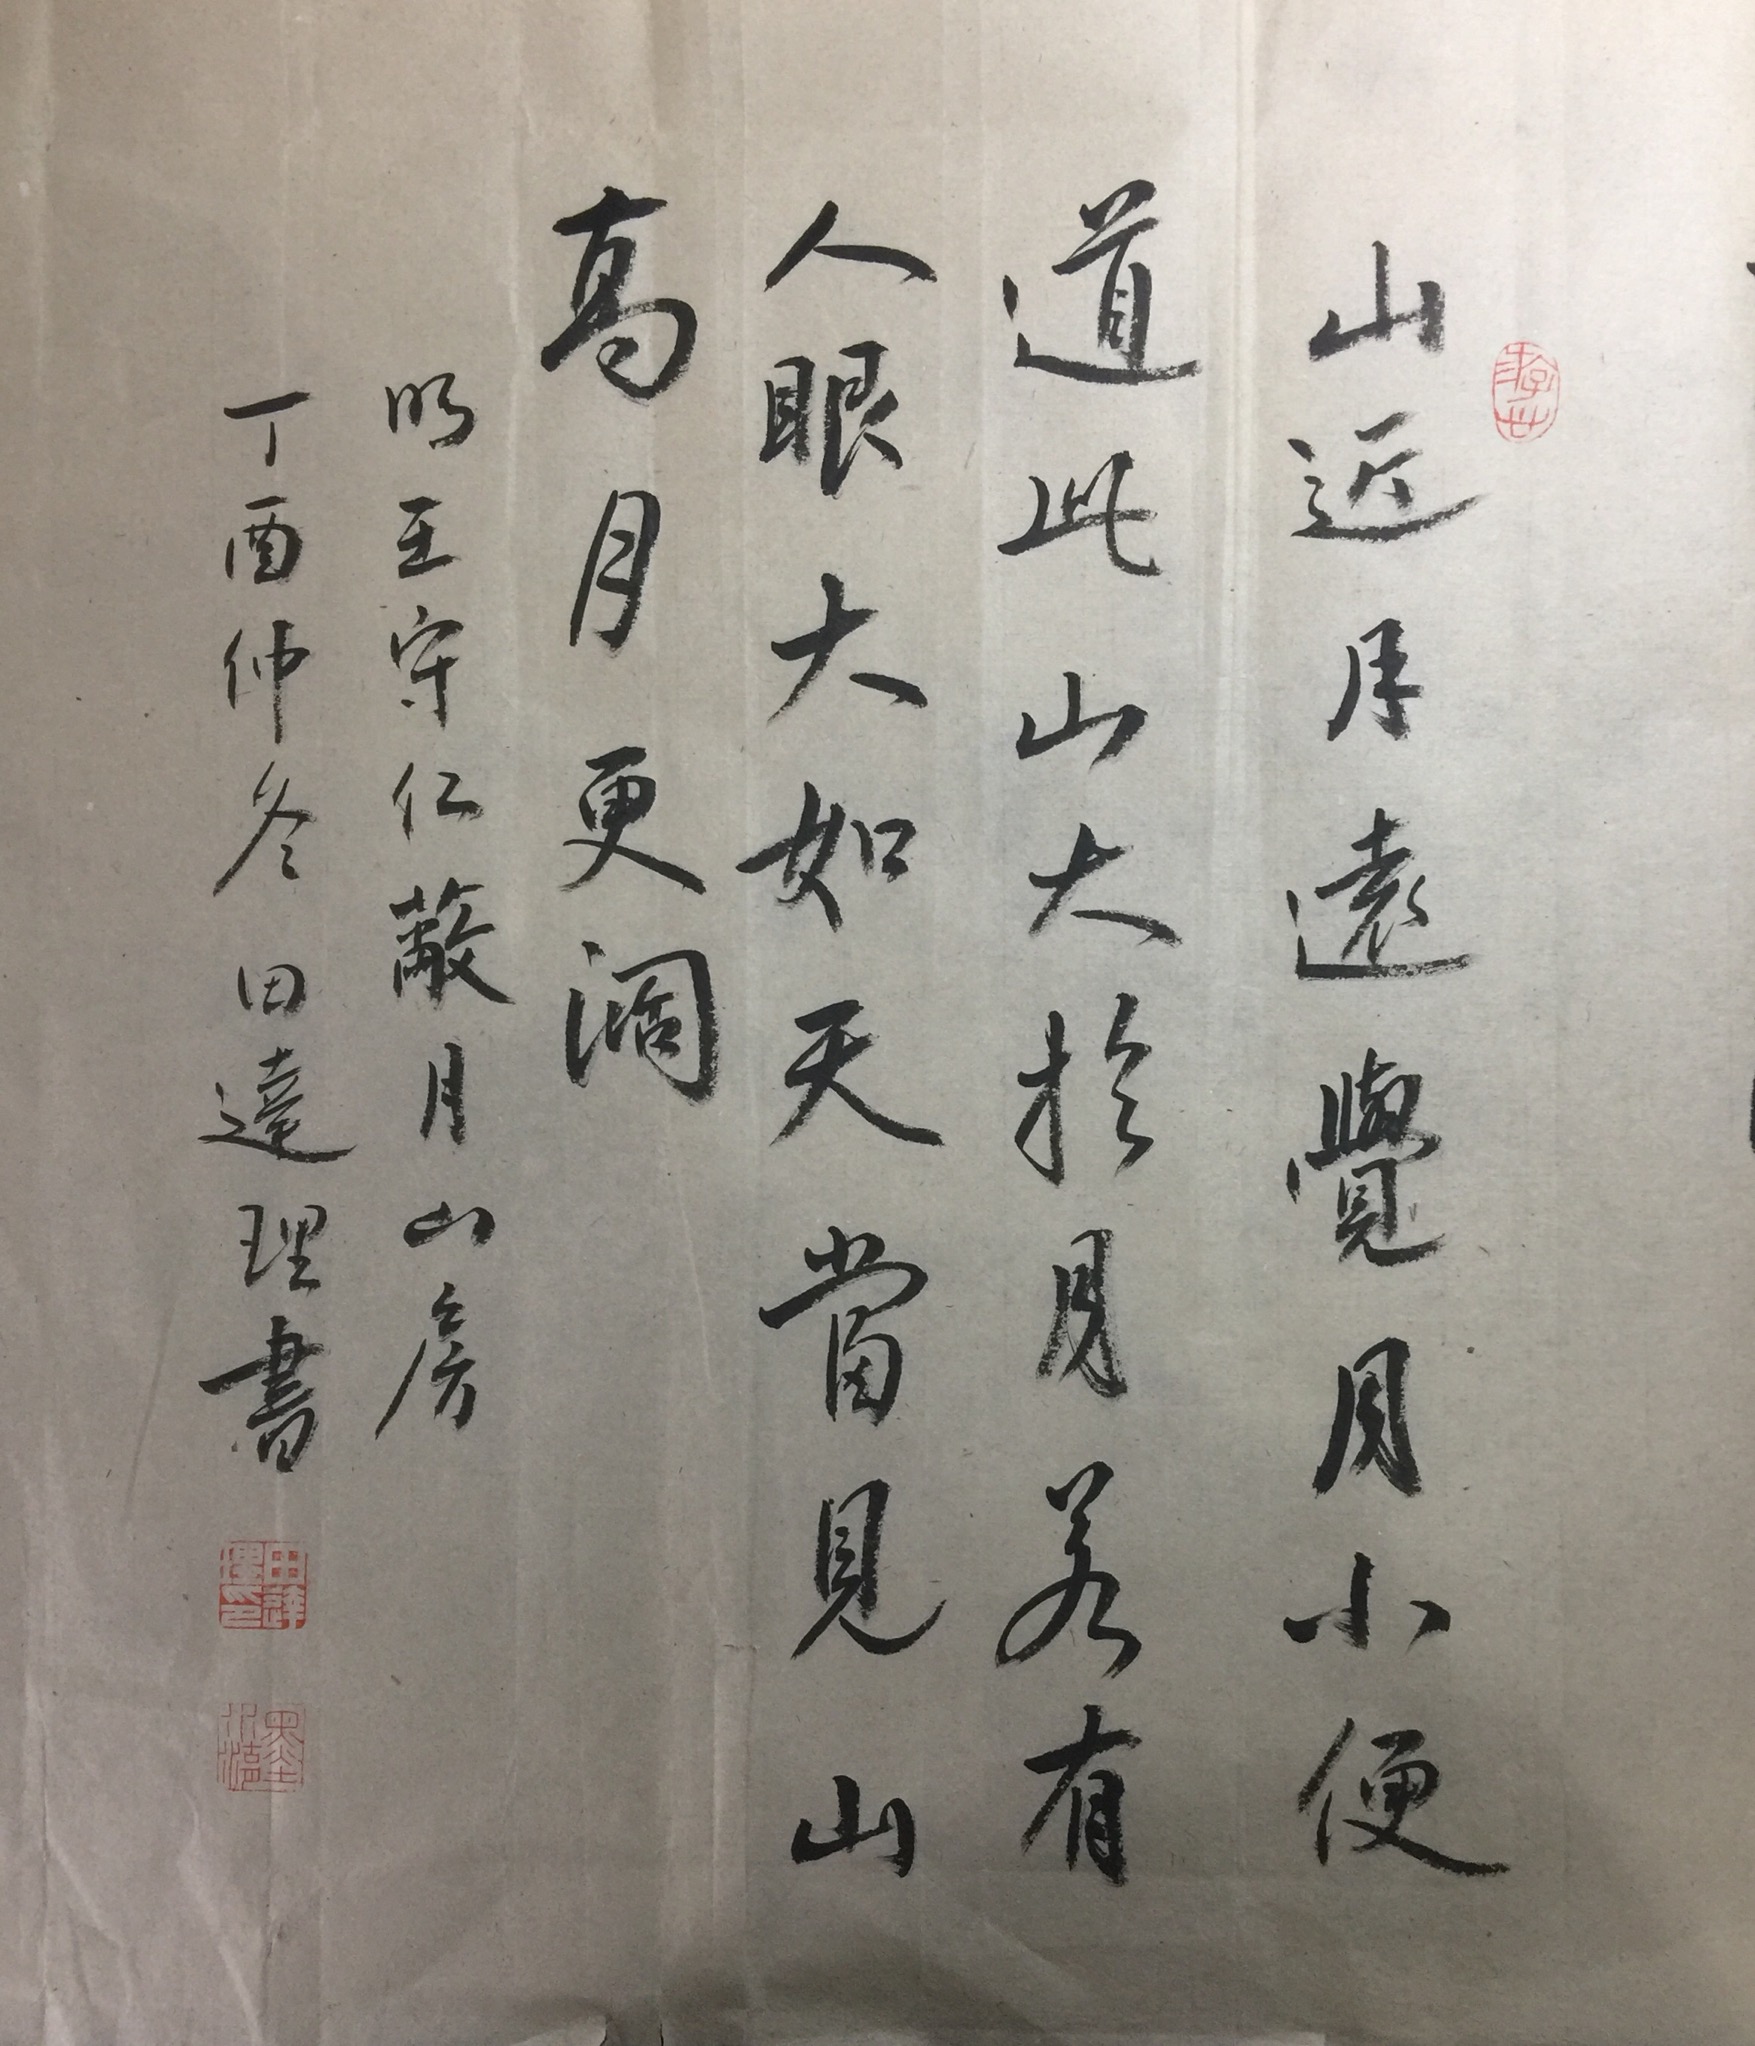 山近月遠覺月小便
道此山大於月若有
人眼大如天當見山
高月更闊
明王守仁蔽月山房
丁酉仲冬田達理書
田達理印